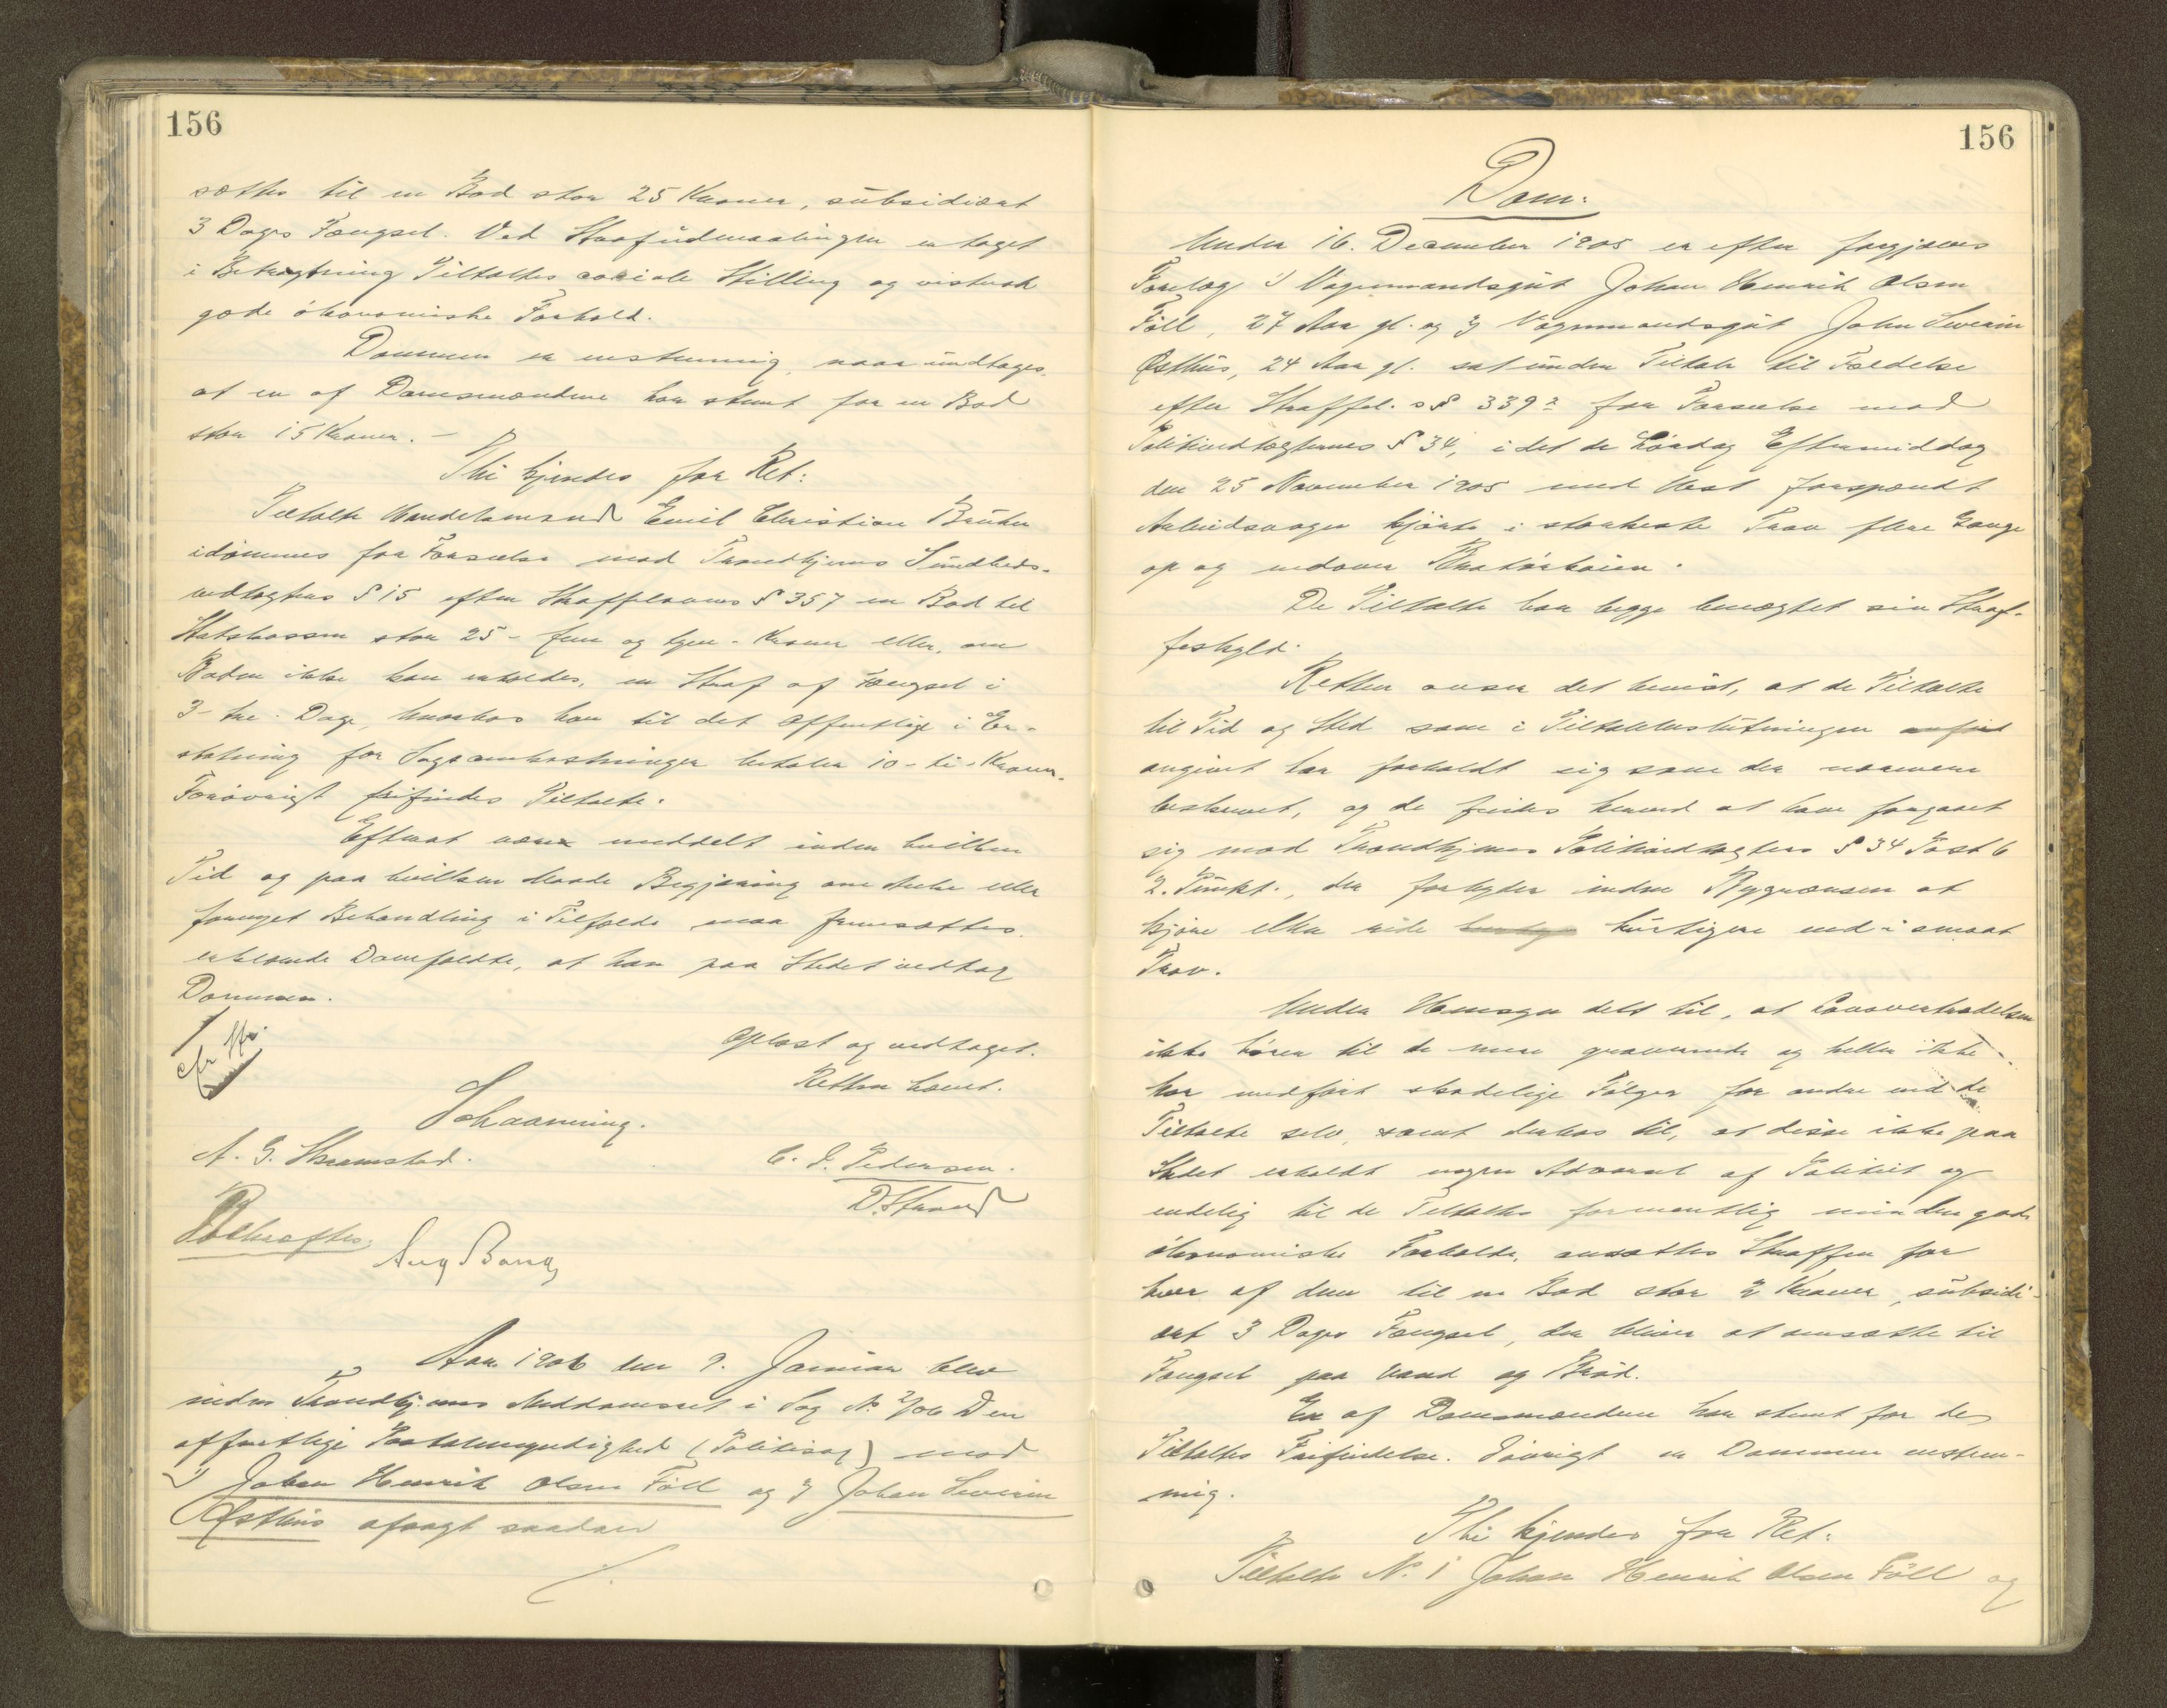 156
sættes til en Bod stor 25 Kroner, subsidiært
3 Dages Fængsel. Ved Strafudmaalingen er taget
i Betragtning Tiltaltes sociale Stilling og vistnok
gode økonomiske Forhold.
Dommen er enstemmig, naar undtages,
at en af Domsmændene har stemt for en Bod
stor 15 Kroner. –
Thi kjendes for Ret:
Tiltalte Handelsmand Emil Christian Brüker
idømmes for Forseelse mod Trondhjems Sundheds-
vedtægters § 15 efter Straffelovens § 357 en Bod til
Statskassen stor 25 - fem og tyve - Kroner eller, om
Boden ikke kan erholdes, en Straf af Fængsel i
3 - tre - Dage, hvorhos han til det Offentlige i Er-
statning for Sagsomkostninger betaler 10 - ti - Kroner.
Forøvrigt frifindes Tiltalte.
Efterat være meddelt inden hvilken
Tid og paa hvilken Maade Begjæring om Anke eller
fornyet Behandling i Tilfælde maa fremsættes,
erklærede Domfældte, at han paa Stedet vedtog
Dommen.
Oplæst og vedtaget.
Retten hævet.
Schaanning.
A. G. Skramstad.
C. J. Pedersen.
D. Strand
Bekræftes:
Aug Bang
Aar 1906 den 9. Januar blev
inden Trondhjems Meddomsret i Sag No 2/06 Den
offentlige Paatalemyndighed (Politisag) mod
1) Johan Henrik Olsen Föll og 2) Johan Severin
Østhus afsagt saadan
156
Dom:
Under 16. December 1905 er efter forgjæves
Forelæg 1) Vognmandsgut Johan Henrik Olsen
Föll, 27 Aar gl. og 2) Vognmandsgut John Severin
Østhus, 24 Aar gl. sat under Tiltale til Fældelse
efter Straffel.s § 339 2 for Forseelse mod
Politivedtægternes § 34, i det de Lørdag Eftermiddag
den 25 November 1905 med Hest forspændt
Arbeidsvogn kjørte i stærkeste Trav flere Gange
op og nedover Bratørbroen.
De Tiltalte har begge benægtet sin Straf-
feskyld.
Retten anser det bevist, at de Tiltalte
til Tid og Sted som i Tiltalebeslutningen anført
angivet har forholdt sig som der nærmere
beskrevet, og de findes herved at have forgaaet
sig mod Trondhjems Politivedtægters § 34 Post 6
2. Punkt., der forbyder inden Bygrænsen at
kjøre eller ride hurtigere end i smaat
Trav.
Under Hensyn dels til, at Lovovertrædelsen
ikke hører til de mere graverende og heller ikke
har medført skadelige Følger for andre end de
Tiltalte selv, samt derhos til, at disse ikke paa
Stedet erholdt nogen Advarsel af Politiet og
endelig til de Tiltaltes formentlig mindre gode
økonomiske Forholde, ansættes Straffen for
hver af dem til en Bod stor 2 Kroner, subsidi-
ært 3 Dages Fængsel, der bliver at omsætte til
Fængsel paa Vand og Brød.
En af Domsmændene har stemt for de
Tiltaltes Frifindelse. Iøvrigt er Dommen enstem-
mig.
Thi kjendes for Ret:
Tiltalte No. 1 Johan Henrik Olsen Föll og